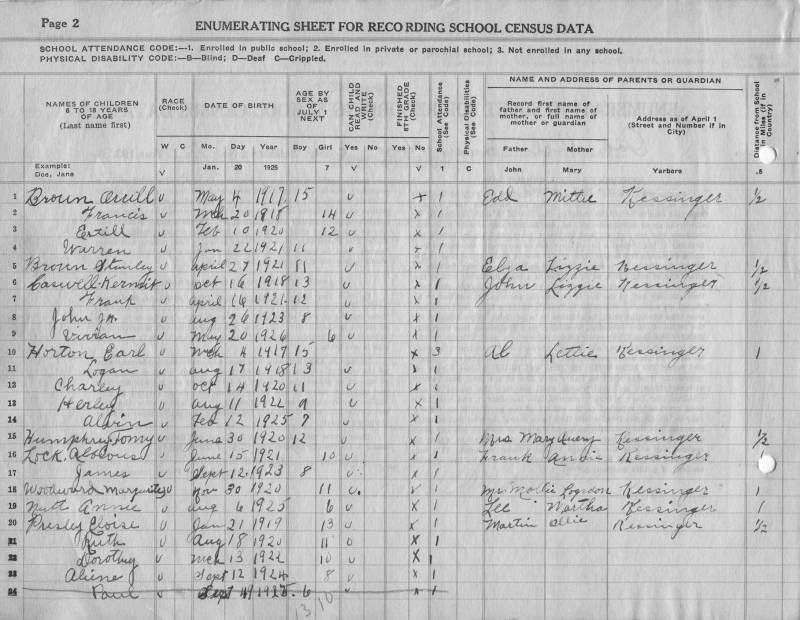 Page 2
ENUMERATING SHEET FOR RECORDING SCHOOL CENSUS DATA
SCHOOL ATTENDANCE CODE:—1. Enrolled in public school; 2. Enrolled in private or parochial school; 3. Not enrolled in any school.
PHYSICAL DISABILITY CODE:—B—Blind; D—Deaf C—Crippled.
NAMES OF CHILDREN 6 TO 18 YEARS OF AGE (Last name first)
RACE (Check)
W C
DATE OF BIRTH
Mo. Day Year
AGE BY SEX AS OF JULY 1 NEXT
Boy Girl
CAN CHILD READ AND WRITE (Check)
Yes No
FINISHED 8TH GRADE (Check)
Yes No
School Attendance (See Code)
Physical Disabilities (See Code)
NAME AND ADDRESS OF PARENTS OR GUARDIAN
Record first name of father and first name of mother, or full name of mother or guardian
Father Mother
Address as of April 1 (Street and Number if in City)
Distance from School in Miles (if in Country)
Example: Doe, Jane V Jan. 20 1925 7 V V 1 C John Mary Yarboro .5
1 Brown v May 4 1917 15 v x 1 Edd Mittie Kessinger 1/2
2 Francis v Mch 20 1918 14 v x 1
3 Estill v Feb 10 1920 12 v x 1
4 Warren v Jan 22 1921 11 v x 1
5 Brown Stanley v April 27 1921 11 v x 1 Elza Lizzie Kessinger 1/2
6 Caswell Kermit v Oct 16 1918 13 v x 1 John Lizzie Kessinger 1/2
7 Frank v April 16 1921 12 x 1
8 John Jr. v Aug 26 1923 8 v x 1
9 Vivian v May 20 1926 6 v x 1
10 Horton Earl v Mch 4 1917 15 x 3 Al Lettie Kessinger 1
11 Logan v Aug 17 1918 13 v x 1
12 Charley v Oct 14 1920 11 v x 1
13 Herley v Aug 11 1922 9 v x 1
14 Alvin v Feb 12 1925 7 v x 1
15 Humphrey Tomy v June 30 1920 12 v x 1 Mrs. Mary Kessinger 1/2
16 Lock v June 15 1921 10 v x 1 Frank Annie Kessinger 1
17 James v Sept 12 1923 8 v x 1
18 Woodward v Nov 30 1920 11 v. v 1 Mollie Logsdon Kessinger 1
19 Nutt Annie v Aug 6 1925 6 v x 1 Lee Martha Kessinger 1
20 Presley Cloise v Jan 21 1919 13 v x 1 Martin Ollie Kessinger 1/2
21 Ruth v Aug 18 1920 11 v x 1
22 Dorothy v Mch 13 1922 10 v x 1
23 Aliene v Sept 12 1924 8 v x 1
24 Paul v Sept 1925 6 v x 1
13 10